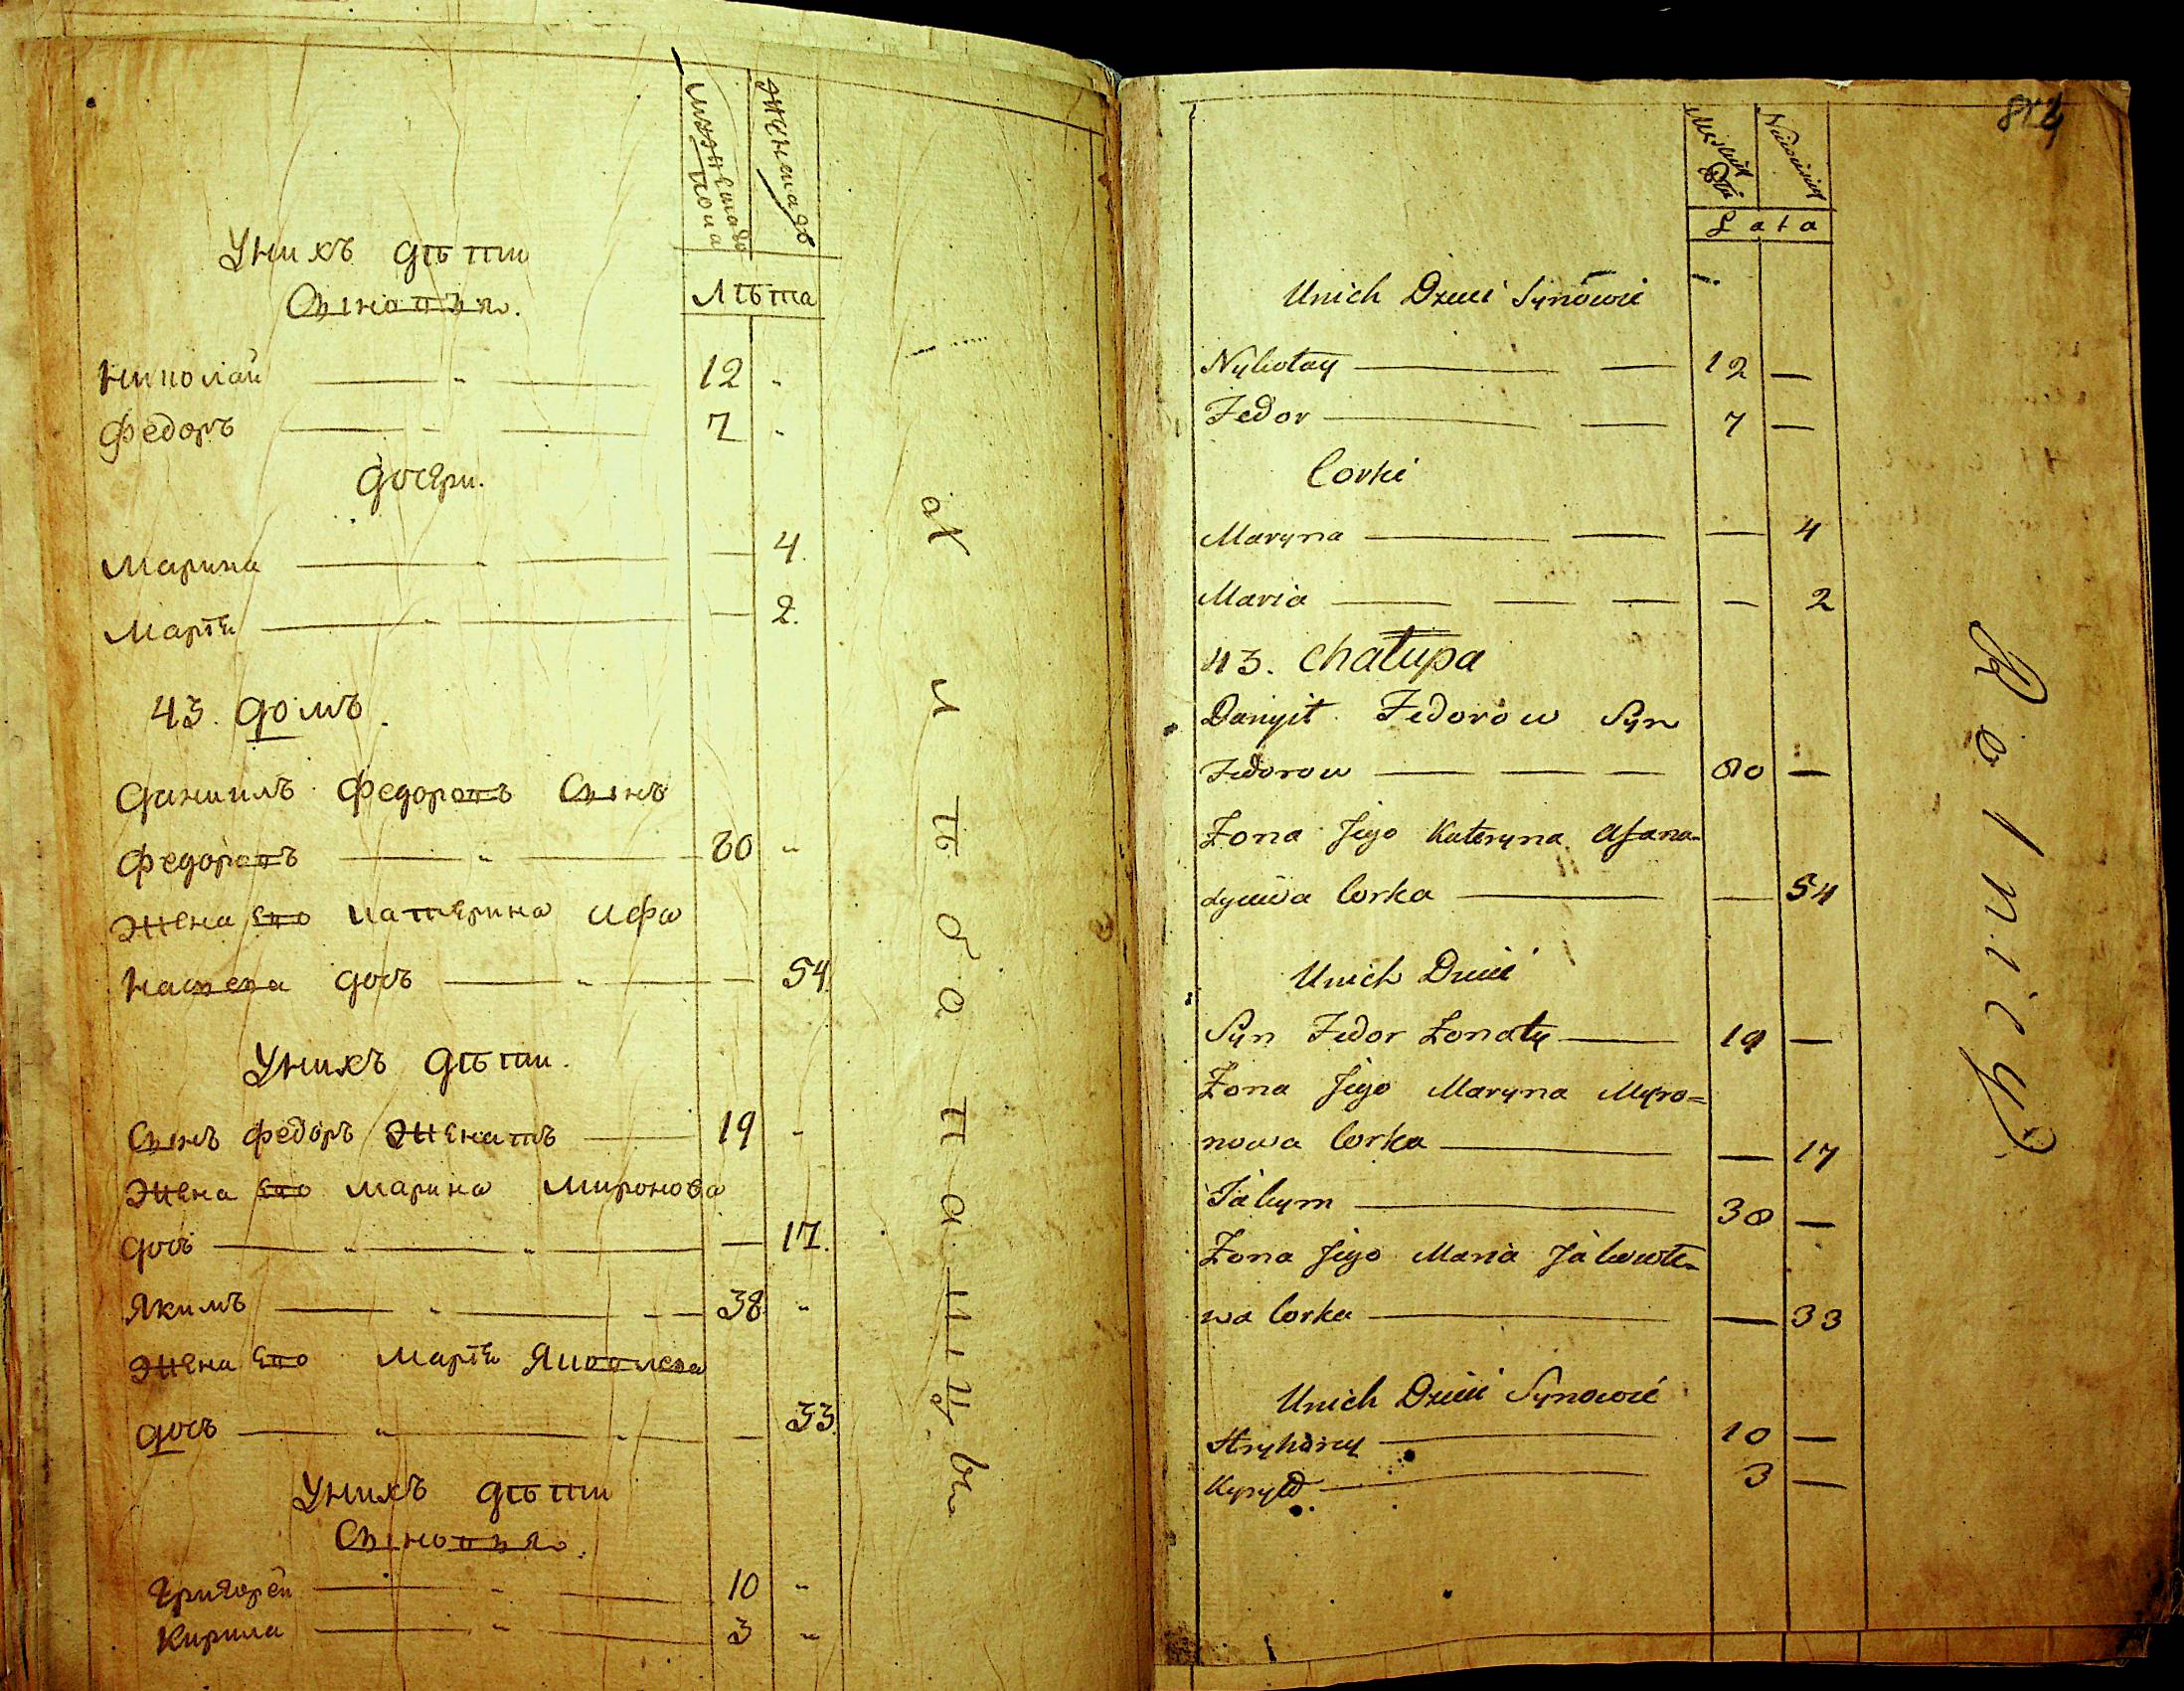 мужеска пола
женска
Лѣта
У нихъ дѣти
Сыновья.
Николай 12 "
Федоръ 7 "
дочери.
Марина — 4.
Марія — 2.
43. домъ.
Даниилъ Федоровъ Сынъ
Федоровъ 80 "
Жена его Катерина Афа
насьева дочь — 54.
У нихъ дѣти.
Сынъ Федоръ Женатъ 19 "
Жена его Марина Миронова
дочь — 17.
Якимъ 38 "
Жена его Марія Яковлева
дочь — 33.
У нихъ дѣти
Сыновья.
Григорей 10 "
Кирила 3 "
Lata
Unich Dzieci Synowie
Nykołay 12 —
Fedor 7 —
Corki
Maryna — 4
Maria — 2
43. Chałupa
Danyił Fedorow Syn
Fedorow 80 —
Żona Jego Kateryna Afana-
Corka — 54
Unich Dzieci
Syn Fedor Żonaty 19 —
Żona Jego Maryna Myro=
nowa Corka — 17
Jakym 38 —
Żona Jego Maria Jakowle-
wa Corka — 33
Unich Dzieci Synowie
Hryhorey 10 —
Kyryło 3 —
Rolnicy